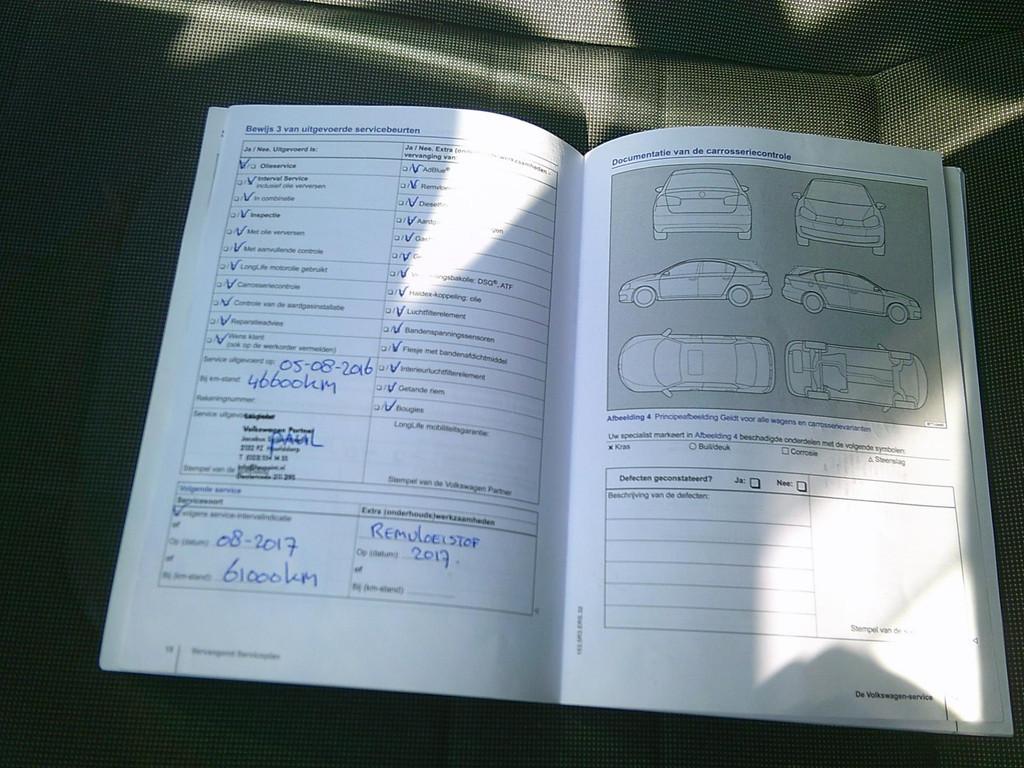 Bewijs 3 van uitgevoerde servicebeurten
Ja / Nee. Uitgevoerd is:
Olieservice
Interval Service
inclusief olie verversen
In combinatie
Inspectie
Met olie verversen
Met aanvullende controle
LongLife motorolie gebruikt
Carrosseriecontrole
Controle van de aardgasinstallatie
Reparatieadvies
Wens klant
(ook op de werkorder vermelden)
Service uitgevoerd op: 05-08-2016
Bij km-stand: 46600km
Rekeningnummer:
Service
Volkswagen Partner
Stempel van de
Ja / Nee. Extra
vervanging van:
AdBlue®
DSG®, ATF
Haldex-koppeling: olie
Luchtfilterelement
Bandenspanningssensoren
Flesje met bandenafdichtmiddel
Interieurluchtfilterelement
Getande riem
Bougies
LongLife mobiliteitsgarantie:
Stempel van de Volkswagen Partner
Volgende service
Servicesoort
volgens service-intervalindicatie
of
Op (datum): 08-2017
of
Bij (km-stand): 61000km
Extra (onderhouds)werkzaamheden
REMVLOEISTOF
Op (datum): 2017.
of
Bij (km-stand):
18 Vervangend Serviceplan
Documentatie van de carrosseriecontrole
Afbeelding 4 Principeafbeelding Geldt voor alle wagens en carrosserievarianten
Uw specialist markeert in Afbeelding 4 beschadigde onderdelen met de volgende symbolen:
x Kras ○ Buil/deuk □ Corrosie △ Steenslag
Defecten geconstateerd? Ja: Nee:
Beschrijving van de defecten:
Stempel van de
De Volkswagen-service